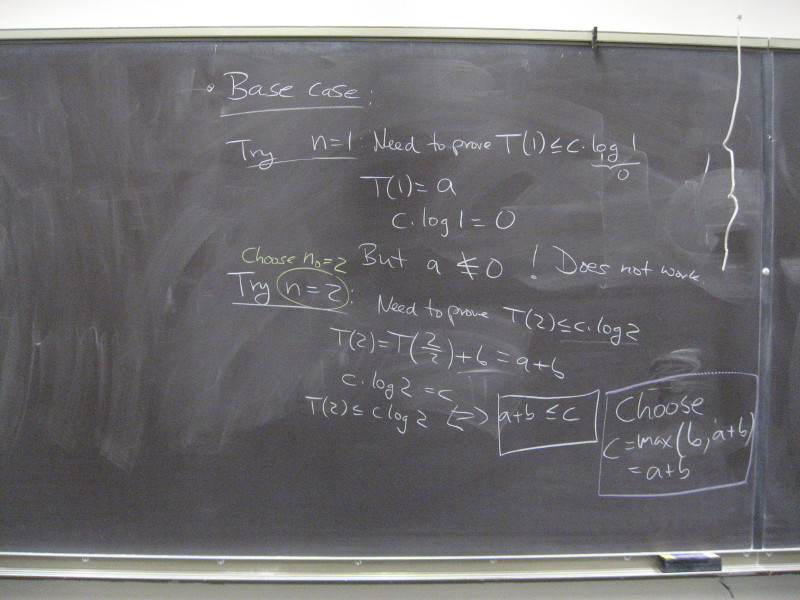 • Base case:
Try n=1: Need to prove T(1) ≤ c·log 1
0
T(1) = a
c·log 1 = 0
But a ≰ 0 ! Does not work.
Choose n₀=2
Try n=2:
Need to prove T(2) ≤ c·log 2
T(2) = T(2/2) + b = a+b
c·log 2 = c
T(2) ≤ c log 2 ⟺ a+b ≤ c
Choose
C = max(b, a+b)
= a+b